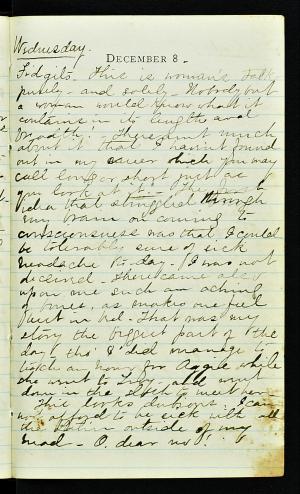 Wednesday.
DECEMBER 8.
Fidgits. This is woman's talk
purely - and solely - Nobody but
a woman would know what it
contains in its length and
breadth! - There isnt much
about it that I haven't found
out in my career which you may
call long or short just as
you look at it - The
idea that struggled through
my brain on coming to
consciousness was that I could
be tolerably sure of sick
headache to-day - I was not
deceived - There came also
upon me such an aching
of bones, as makes one feel
quiet in bed - That was my
story the biggest part of the
day, tho' I did manage to
watch an hour for Aggie while
she went to Troy - and went
down in the to meet her.
This looks dubious. I can
not afford to be sick with all
the outside of my
head - O. dear no!!